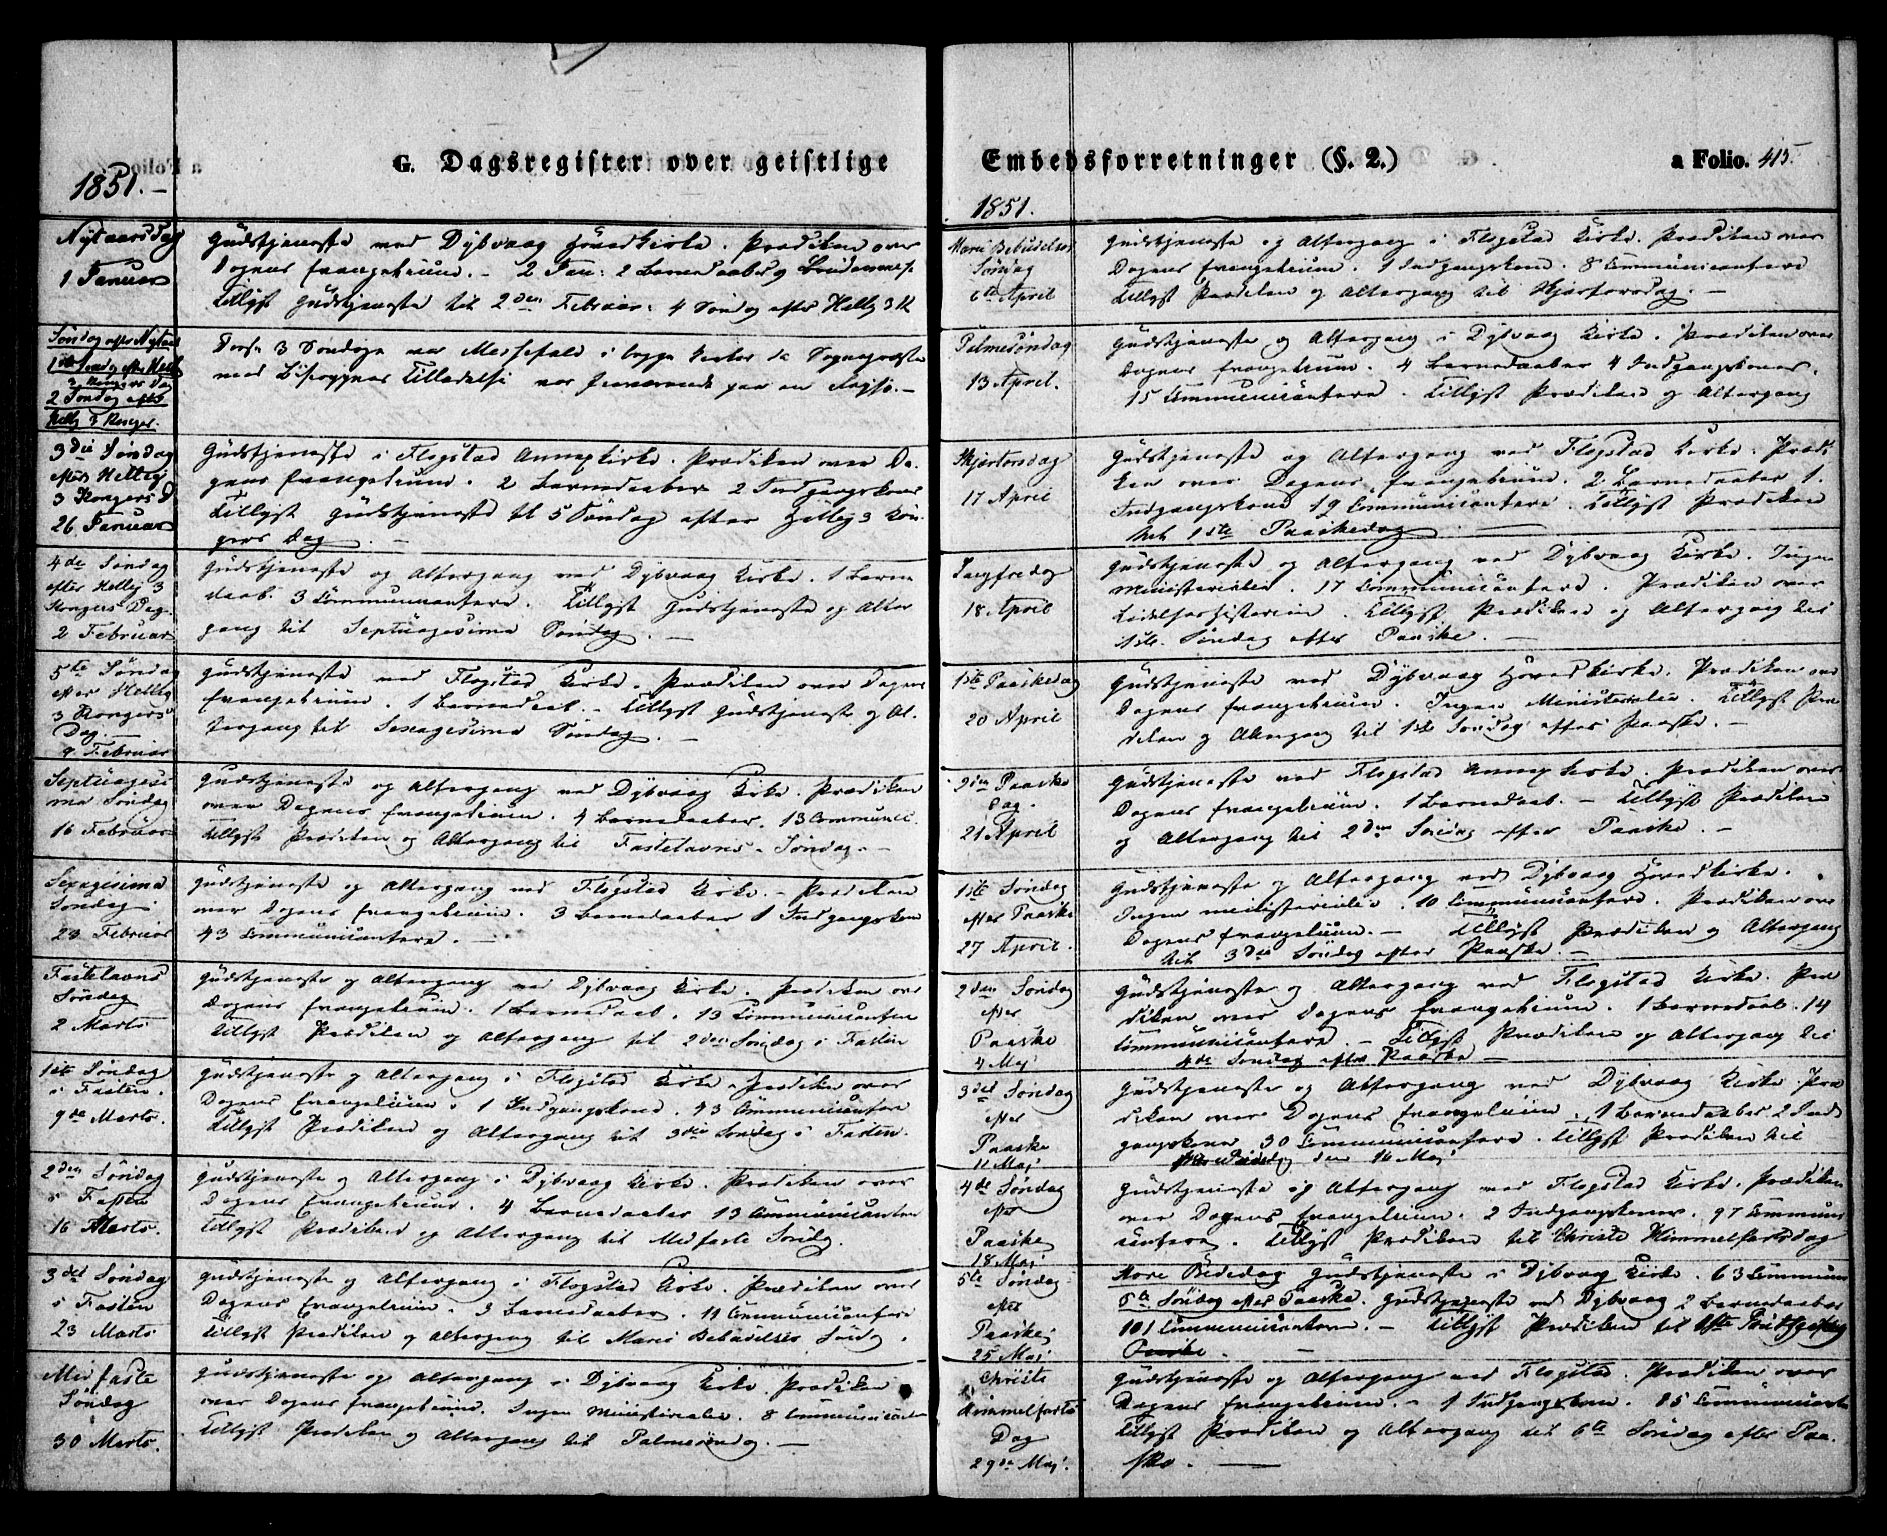 G. Dagsregister over geistlige
1851.
Nytaarsdag
1 Januar
Gudstjeneste ved Dybvaag Hovedkirke. Prædiken over
Dagens Evangelium. - 2 Jan: 2 Barnedaab og Brudemesse
Tillyst Gudstjeneste til 2den Februar: 4 Søndag efter Hellig 3 K
Søndag efter Nytaar
1ste Søndag efter Hellig
3 Kongers Dag
2 Søndag efter
Hellig 3 Konger.
Disse 3 Søndage var Messefald i begge Kirker da Sognepræsten
med Tilladelse var fraværende paa en Rejse. -
3die Søndag
efter Hellig
3 Kongers D
26 Januar
Gudstjeneste i Flosstad Annexkirke. Prædiken over Da-
gens Evangelium. 2 Barnedaaber 2 Indgangskoner
Tillyst Gudstjeneste til 5 Søndag efter Hellig 3 Kon-
gers Dag. -
4de Søndag
efter Hellig 3
Kongers Dag.
2 Februar
Gudstjeneste og Altergang ved Dybvaag Kirke. 1 Barne
daab. 3 Communicantere. Tillyst Gudstjeneste og Alter
gang til Septuagesima Søndag. -
5te Søndag
efter Hellig
3 Kongers
Dag. -
9 Februar
Gudstjeneste ved Flosstad Kirke. Prædiken over Dagens
Evangelium. 1 Barnedaab. - Tillyst Gudstjeneste og Al-
tergang til Sexagesima Søndag. -
Septuagesi
ma Søndag
16 Februar
Gudstjeneste og Altergang ved Dybvaag Kirke. Prædiken
over Dagens Evangelium. 4 Barnedaaber. 13 Communic.
Tillyst Prædiken og Altergang til Fastelavns-Søndag. -
Sexagesima
Søndag.
23 Februar
Gudstjeneste og Altergang ved Flosstad Kirke. - Prædiken
over Dagens Evangelium. 3 Barnedaaber 1 Indgangskone
43 Communicantere. -
Fastelavns
Søndag
2 Marts
Gudstjeneste og Altergang ved Dybvaag Kirke. Prædiken over
Dagens Evangelium. 1 Barnedaab. 13 Communicantere
Tillyst Prædiken og Altergang til 2den Søndag i Fasten
1ste Søndag
i Fasten.
9de Marts.
Gudstjeneste og Altergang i Flosstad Kirke. Prædiken over
Dagens Evangelium. 1 Indgangskone. 43 Communicantere
Tillyst Prædiken og Altergang til 3die Søndag i Fasten.
2den Søndag
i Fasten
16 Marts.
Gudstjeneste og Altergang i Dybvaag Kirke. Prædiken over
Dagens Evangelium. 4 Barnedaaber 13 Communicantere
Tillyst Prædiken og Altergang til Midfaste Søndag.
3die Søndag
i Fasten
23 Marts
Gudstjeneste og Altergang i Flosstad Kirke. Prædiken over
Dagens Evangelium. 3 Barnedaaber. 11 Communicantere
Tillyst Prædiken og Altergang til Mariæ Bebudelses Søndag.
Midfaste
Søndag
30 Marts.
Gudstjeneste og Altergang i Dybvaag Kirke. Prædiken
over Dagens Evangelium. Ingen Ministerialia. 8 Communicantere
Tillyst Prædiken og Altergang til Palmesøndag. -
Embedsforretninger (§. 2.) a Folio. 415.
1851.
Mariæ Bebudelses
Søndag
6te April
Gudstjeneste og Altergang i Flosstad Kirke. Prædiken over
Dagens Evangelium. 1 Indgangskone. 8 Communicantere
Tillyst Prædiken og Altergang til Skjærtorsdag. -
Palmesøndag
13 April.
Gudstjeneste og Altergang i Dybvaag Kirke. Prædiken over
Dagens Evangelium. 4 Barnedaaber 4 Indgangskoner.
15 Communicantere. Tillyst Prædiken og Altergang
Skjærtorsdag
17 April
Gudstjeneste og Altergang ved Flosstad Kirke. Prædi
ken over Dagens Evangelium. 2 Barnedaaber 1.
Indgangskone 19 Communicantere. Tillyst Prædiken
til 1ste Paaskedag
Langfredag
18 April
Gudstjeneste og Altergang ved Dybvaag Kirke. Ingen
Ministerialia. 17 Communicantere. Prædiken over
Lidelseshistorien. Tillyst Prædiken og Altergang til
1ste Søndag efter Paaske. -
1ste Paaskedag
20 April
Gudstjeneste ved Dybvaag Hovedkirke. Prædiken over
Dagens Evangelium. Ingen Ministerialia. Tillyst Præ
diken og Altergang til 1ste Søndag efter Paaske. -
2den Paaske
dag.
21 April
Gudstjeneste ved Flosstad Annexkirke. Prædiken over
Dagens Evangelium. 1 Barnedaab. - Tillyst Prædiken
og Altergang til 2den Søndag efter Paaske. -
1ste Søndag
efter Paaske
27 April.
Gudstjeneste og Altergang ved Dybvaag Hovedkirke.
Ingen Ministerialia. 10 Communicantere. Prædiken over
Dagens Evangelium. - Tillyst Prædiken og Altergang
til 3die Søndag efter Paaske. -
2den Søndag
efter
Paaske
4 Maj
Gudstjeneste og Altergang ved Flosstad Kirke. Præ
diken over Dagens Evangelium. 1 Barnedaab. 14
Communicantere. - Tillyst Prædiken og Altergang til
4de Søndag efter Paaske -
3die Søndag
efter
Paaske
11 Maj
Gudstjeneste og Altergang ved Dybvaag Kirke Præ
diken over Dagens Evangelium. 1 Barnedaaber 2 Ind
gangskoner 30 Communicantere. Tillyst Prædiken til
Store Bededag den 16 Maj
4de Søndag
efter
Paaske
18 Maj
Gudstjeneste og Altergang ved Flosstad Kirke. Prædiken
over Dagens Evangelium. 2 Indgangskoner. 97 Communi
cantere. Tillyst Prædiken til Christi Himmelfartsdag
5te Søndag
efter
Paaske
25 Maj
Store Bededag Gudstjeneste i Dybvaag Kirke. 63 Commun
5te Søndag efter Paaske. Gudstjeneste ved Dybvaag 2 Barnedaaber
101 Communicantere. - Tillyst Prædiken til 1ste Pintsedag
Paaske. -
Christi
Himmelfarts
Dag
29de Maj.
Gudstjeneste og Altergang ved Flosstad. Prædiken over
Dagens Evangelium. - 1 Indgangskone. 85 Communicante
Tillyst Prædiken og Altergang til 6te Søndag efter Paa-
ske. -